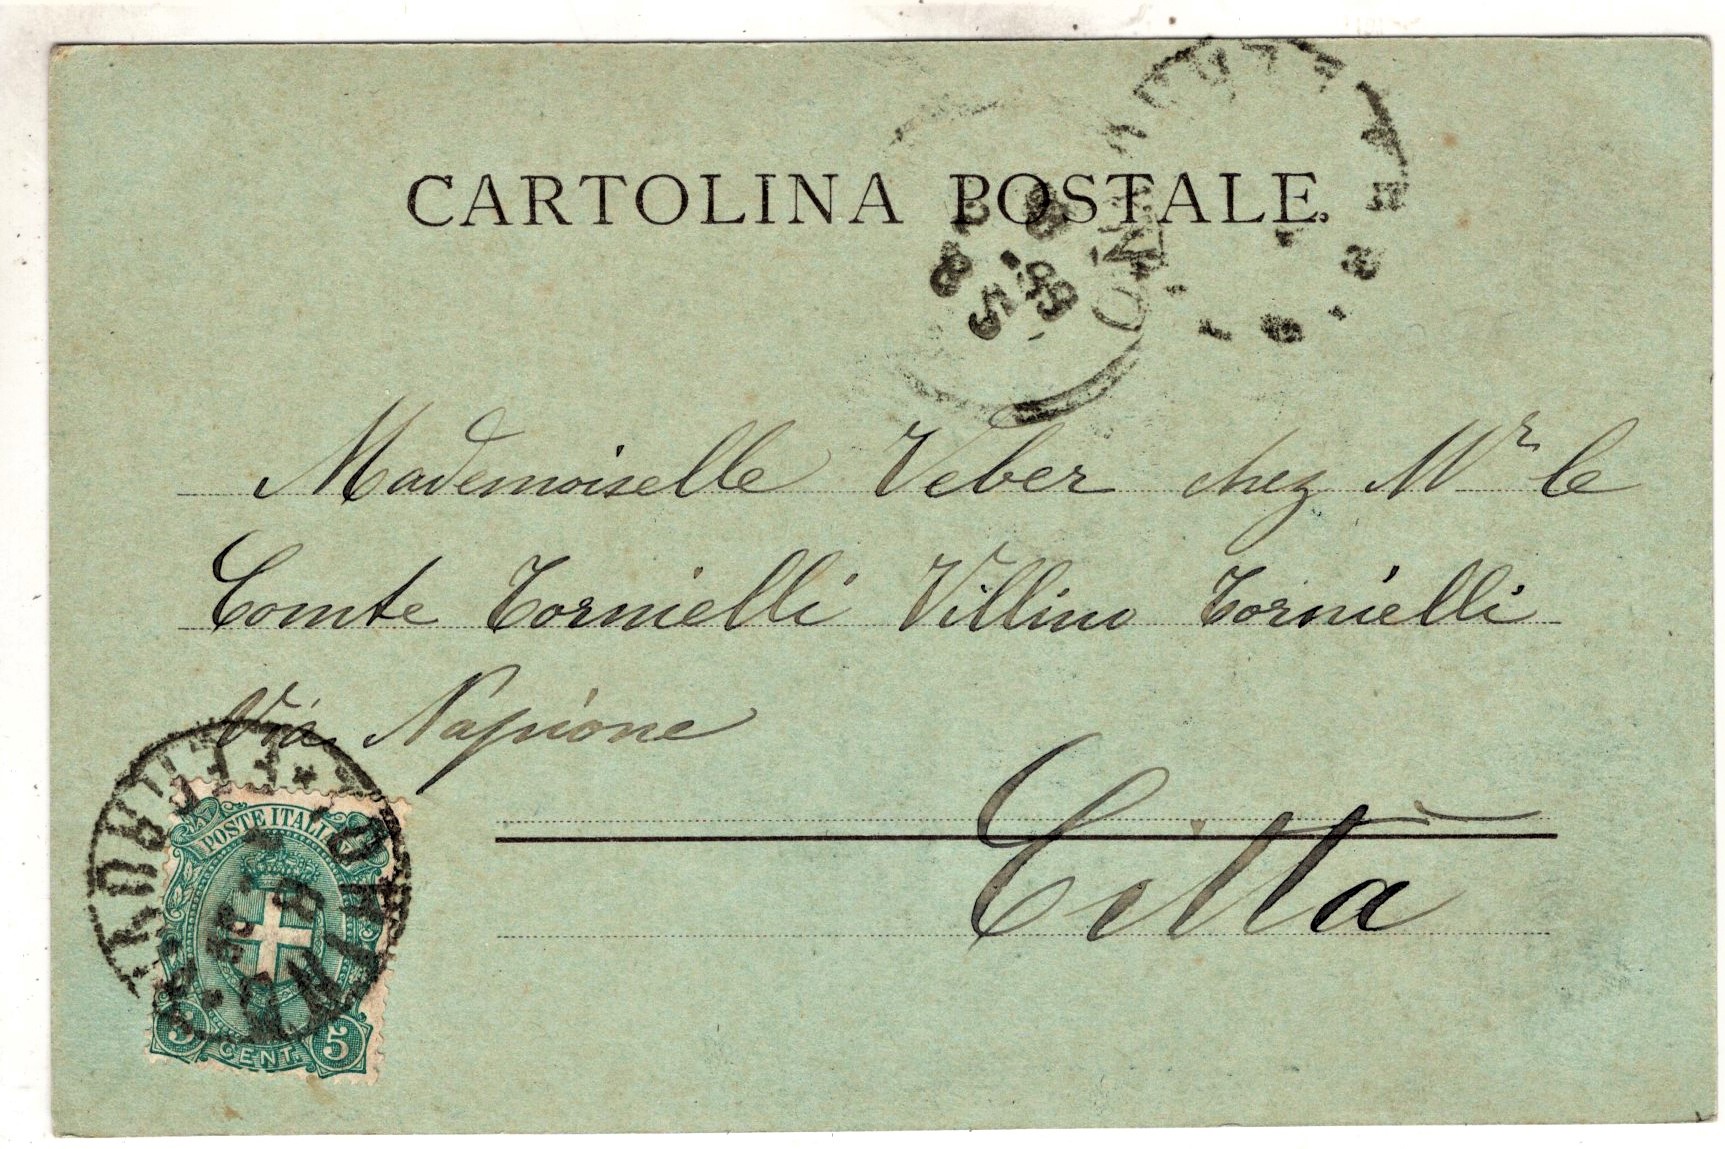 CARTOLINA POSTALE
Mademoiselle Veber chez Mr le
Comte Tornielli Villino Tornielli
Via Napione
Città
POSTE ITALIANE
5 CENT. 5
TORINO
FERROVIA